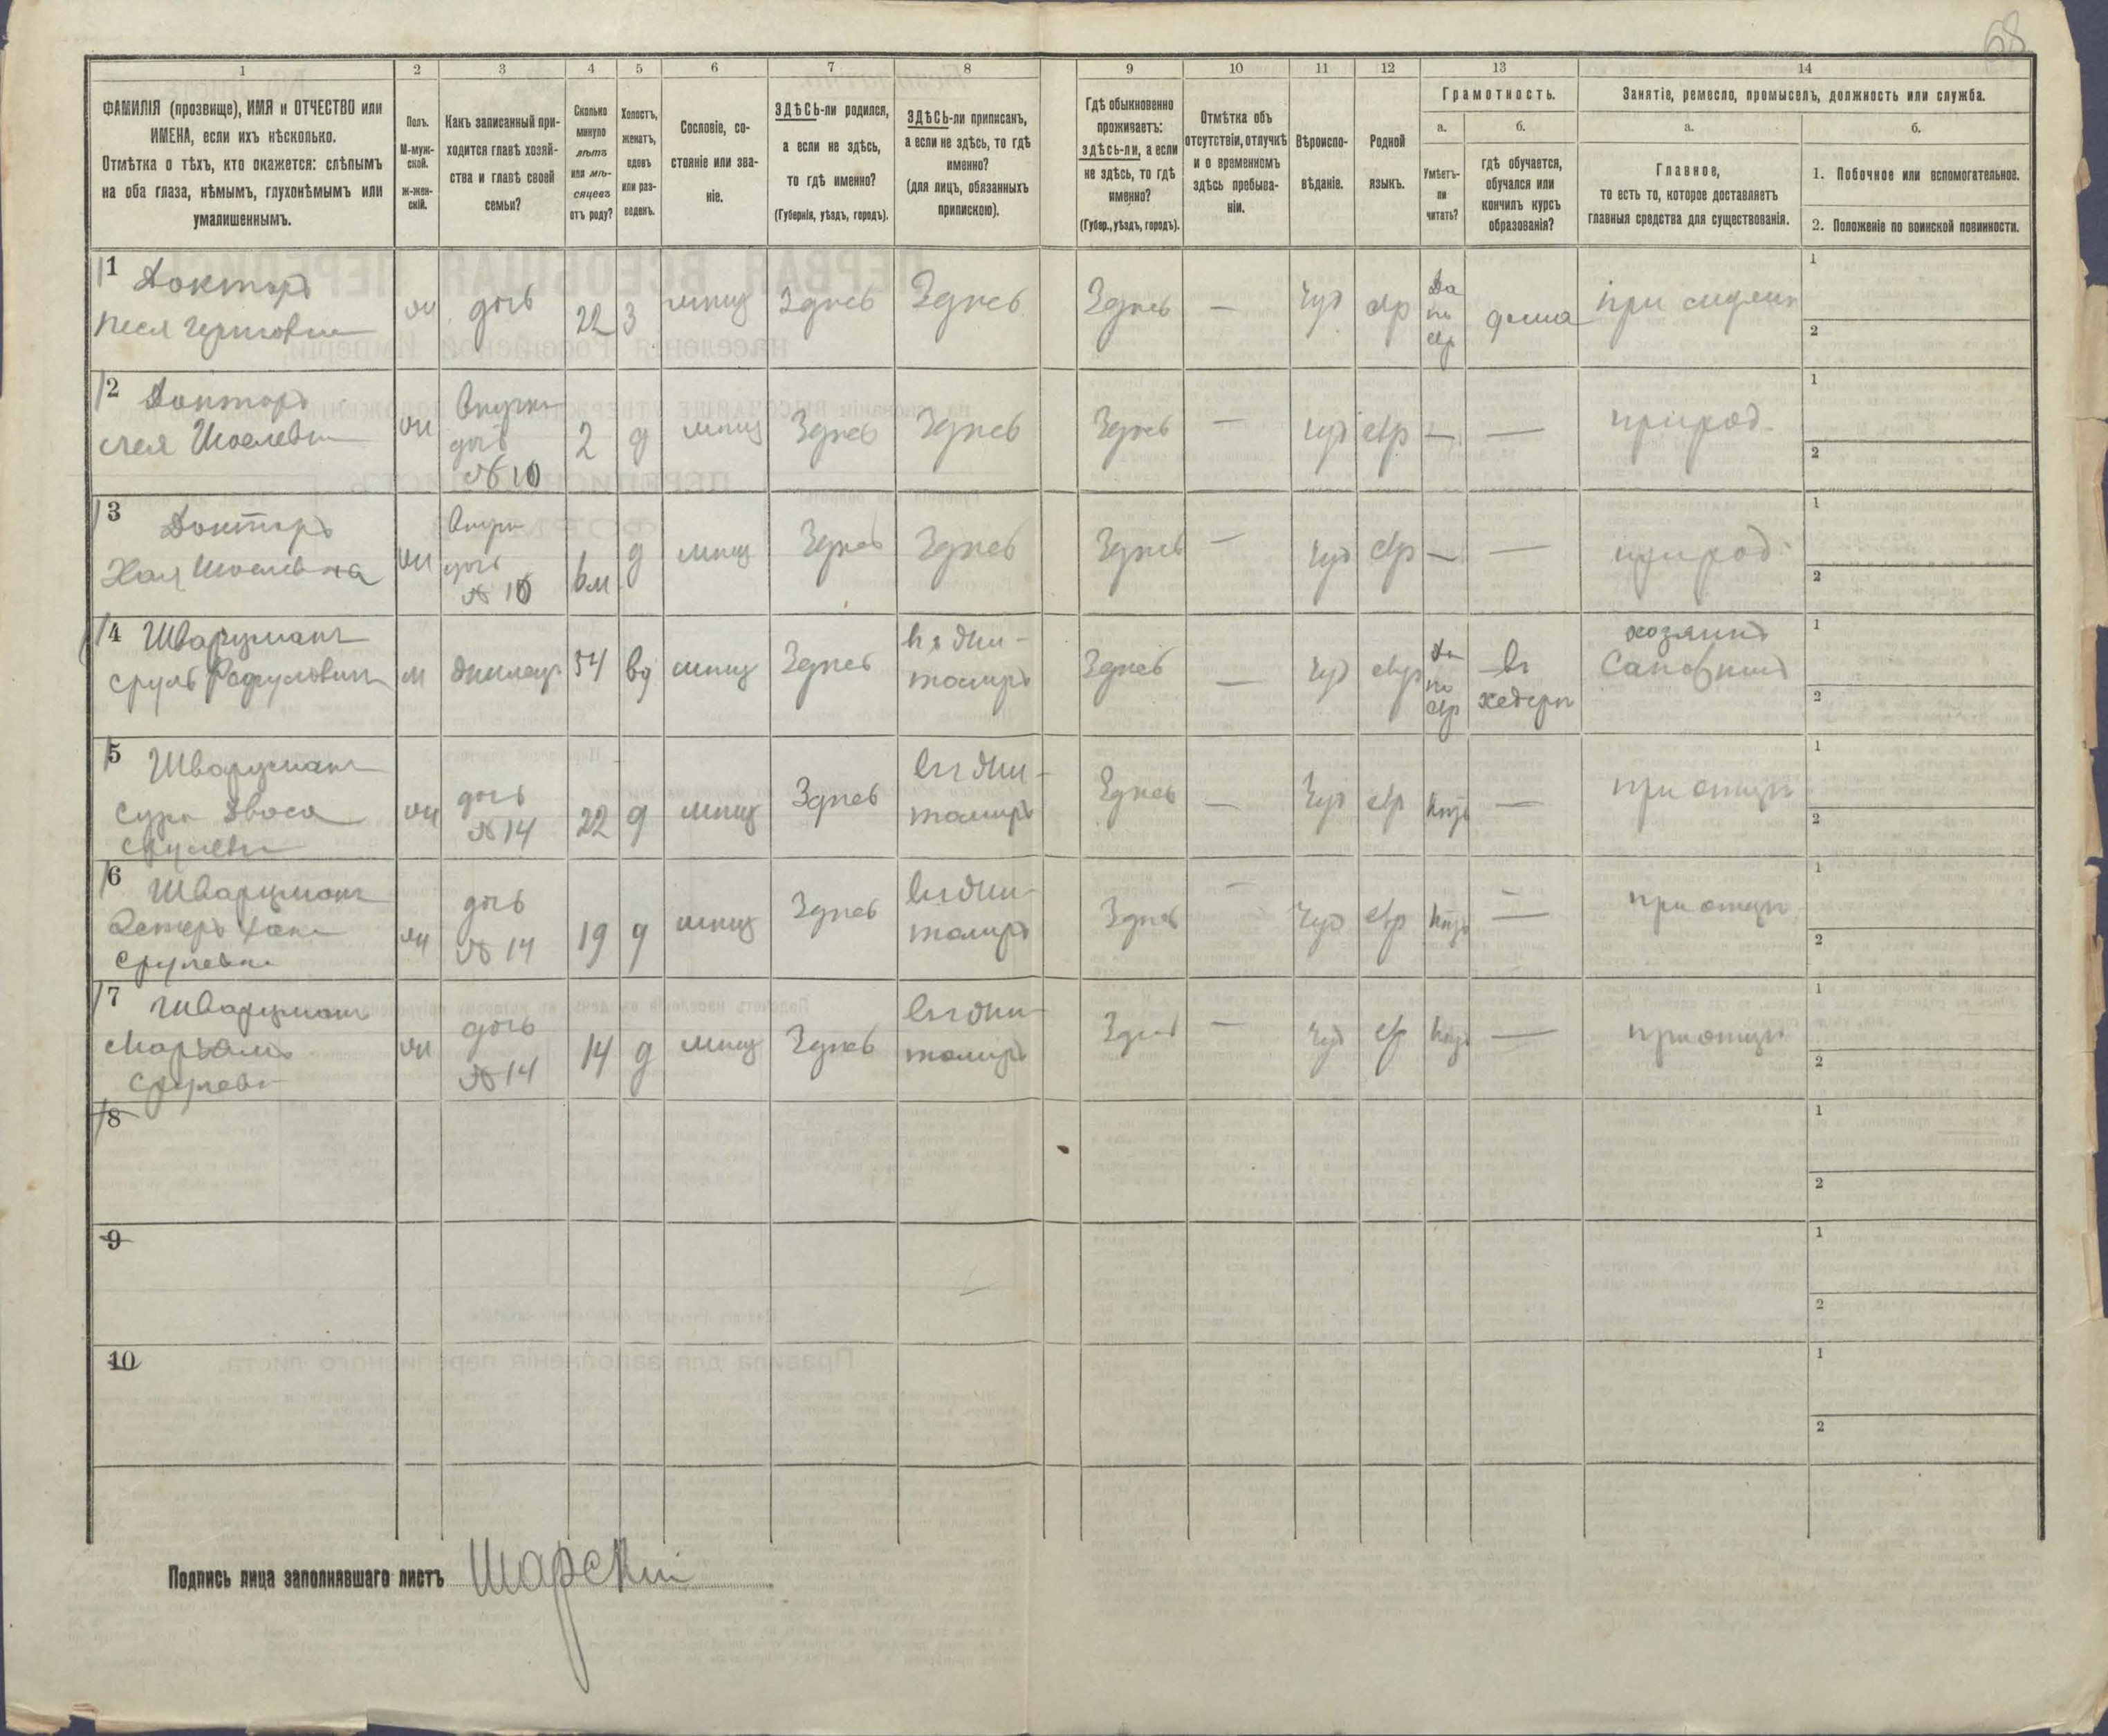 68
1 2 3 4 5 6 7 8 9 10 11 12 13 14
ФАМИЛІЯ (прозвище), ИМЯ и ОТЧЕСТВО или
ИМЕНА, если ихъ нѣсколько.
Отмѣтка о тѣхъ, кто окажется: слѣпымъ
на оба глаза, нѣмымъ, глухонѣмымъ или
умалишеннымъ.
Полъ.
М-муж-
ской.
Ж-жен-
скій.
Какъ записанный при-
ходится главѣ хозяй-
ства и главѣ своей
семьи?
Сколько
минуло
лѣтъ
или мѣ-
сяцевъ
отъ роду?
Холостъ,
женатъ,
вдовъ
или раз-
веденъ.
Сословіе, со-
стояніе или зва-
ніе.
ЗДѢСЬ-ли родился,
а если не здѣсь,
то гдѣ именно?
(Губернія, уѣздъ, городъ).
ЗДѢСЬ-ли приписанъ,
а если не здѣсь, то гдѣ
именно?
(для лицъ, обязанныхъ
припискою).
Гдѣ обыкновенно
проживаетъ:
здѣсь-ли, а если
не здѣсь, то гдѣ
именно?
(Губер., уѣздъ, городъ).
Отмѣтка объ
отсутствіи, отлучкѣ
и о временномъ
здѣсь пребыва-
ніи.
Вѣроиспо-
вѣданіе.
Родной
языкъ.
Грамотность.
а.
Умѣетъ-
ли
читать?
б.
гдѣ обучается,
обучался или
кончилъ курсъ
образованія?
Занятіе, ремесло, промыселъ, должность или служба.
а.
Главное,
то есть то, которое доставляетъ
главныя средства для существованія.
б.
1. Побочное или вспомогательное.
2. Положеніе по воинской повинности.
1 Докторъ
дочь 22 3 мѣщ Здѣсь Здѣсь Здѣсь — Іуд евр Да по евр дома 1 2
2 Докторъ
Лея Шоелевна
Внучка
дочь
№ 10
2 д мѣщ Здѣсь Здѣсь Здѣсь — Іуд евр — — при род. 1 2
3 Докторъ
Хая Шоелевна
дочь
№ 10
6 м д мѣщ Здѣсь Здѣсь Здѣсь — Іуд евр — — при род. 1 2
4 Шварцманъ
Сруль
м жилец 54 вд мѣщ Здѣсь
томиръ
Здѣсь — Іуд евр Да по евр
въ
хедерѣ
хозяинъ
Сапожникъ
1 2
5 Шварцманъ
Сура Двоса
Срулевна
дочь
№ 14
22 д мѣщ Здѣсь
въ Жи-
томирѣ
Здѣсь — Іуд евр — при отцѣ 1 2
6 Шварцманъ
Эстеръ Хана
Срулевна
дочь
№ 14
19 д мѣщ Здѣсь
въ Жи-
томирѣ
Здѣсь — Іуд евр — при отцѣ 1 2
7 Шварцманъ
Марьямъ
Срулевна
дочь
№ 14
14 д мѣщ Здѣсь
въ Жи-
томирѣ
Здѣсь — Іуд евр — при отцѣ 1 2
8 1 2
9 1 2
10 1 2
Подпись лица заполнявшаго листъ Шарскій